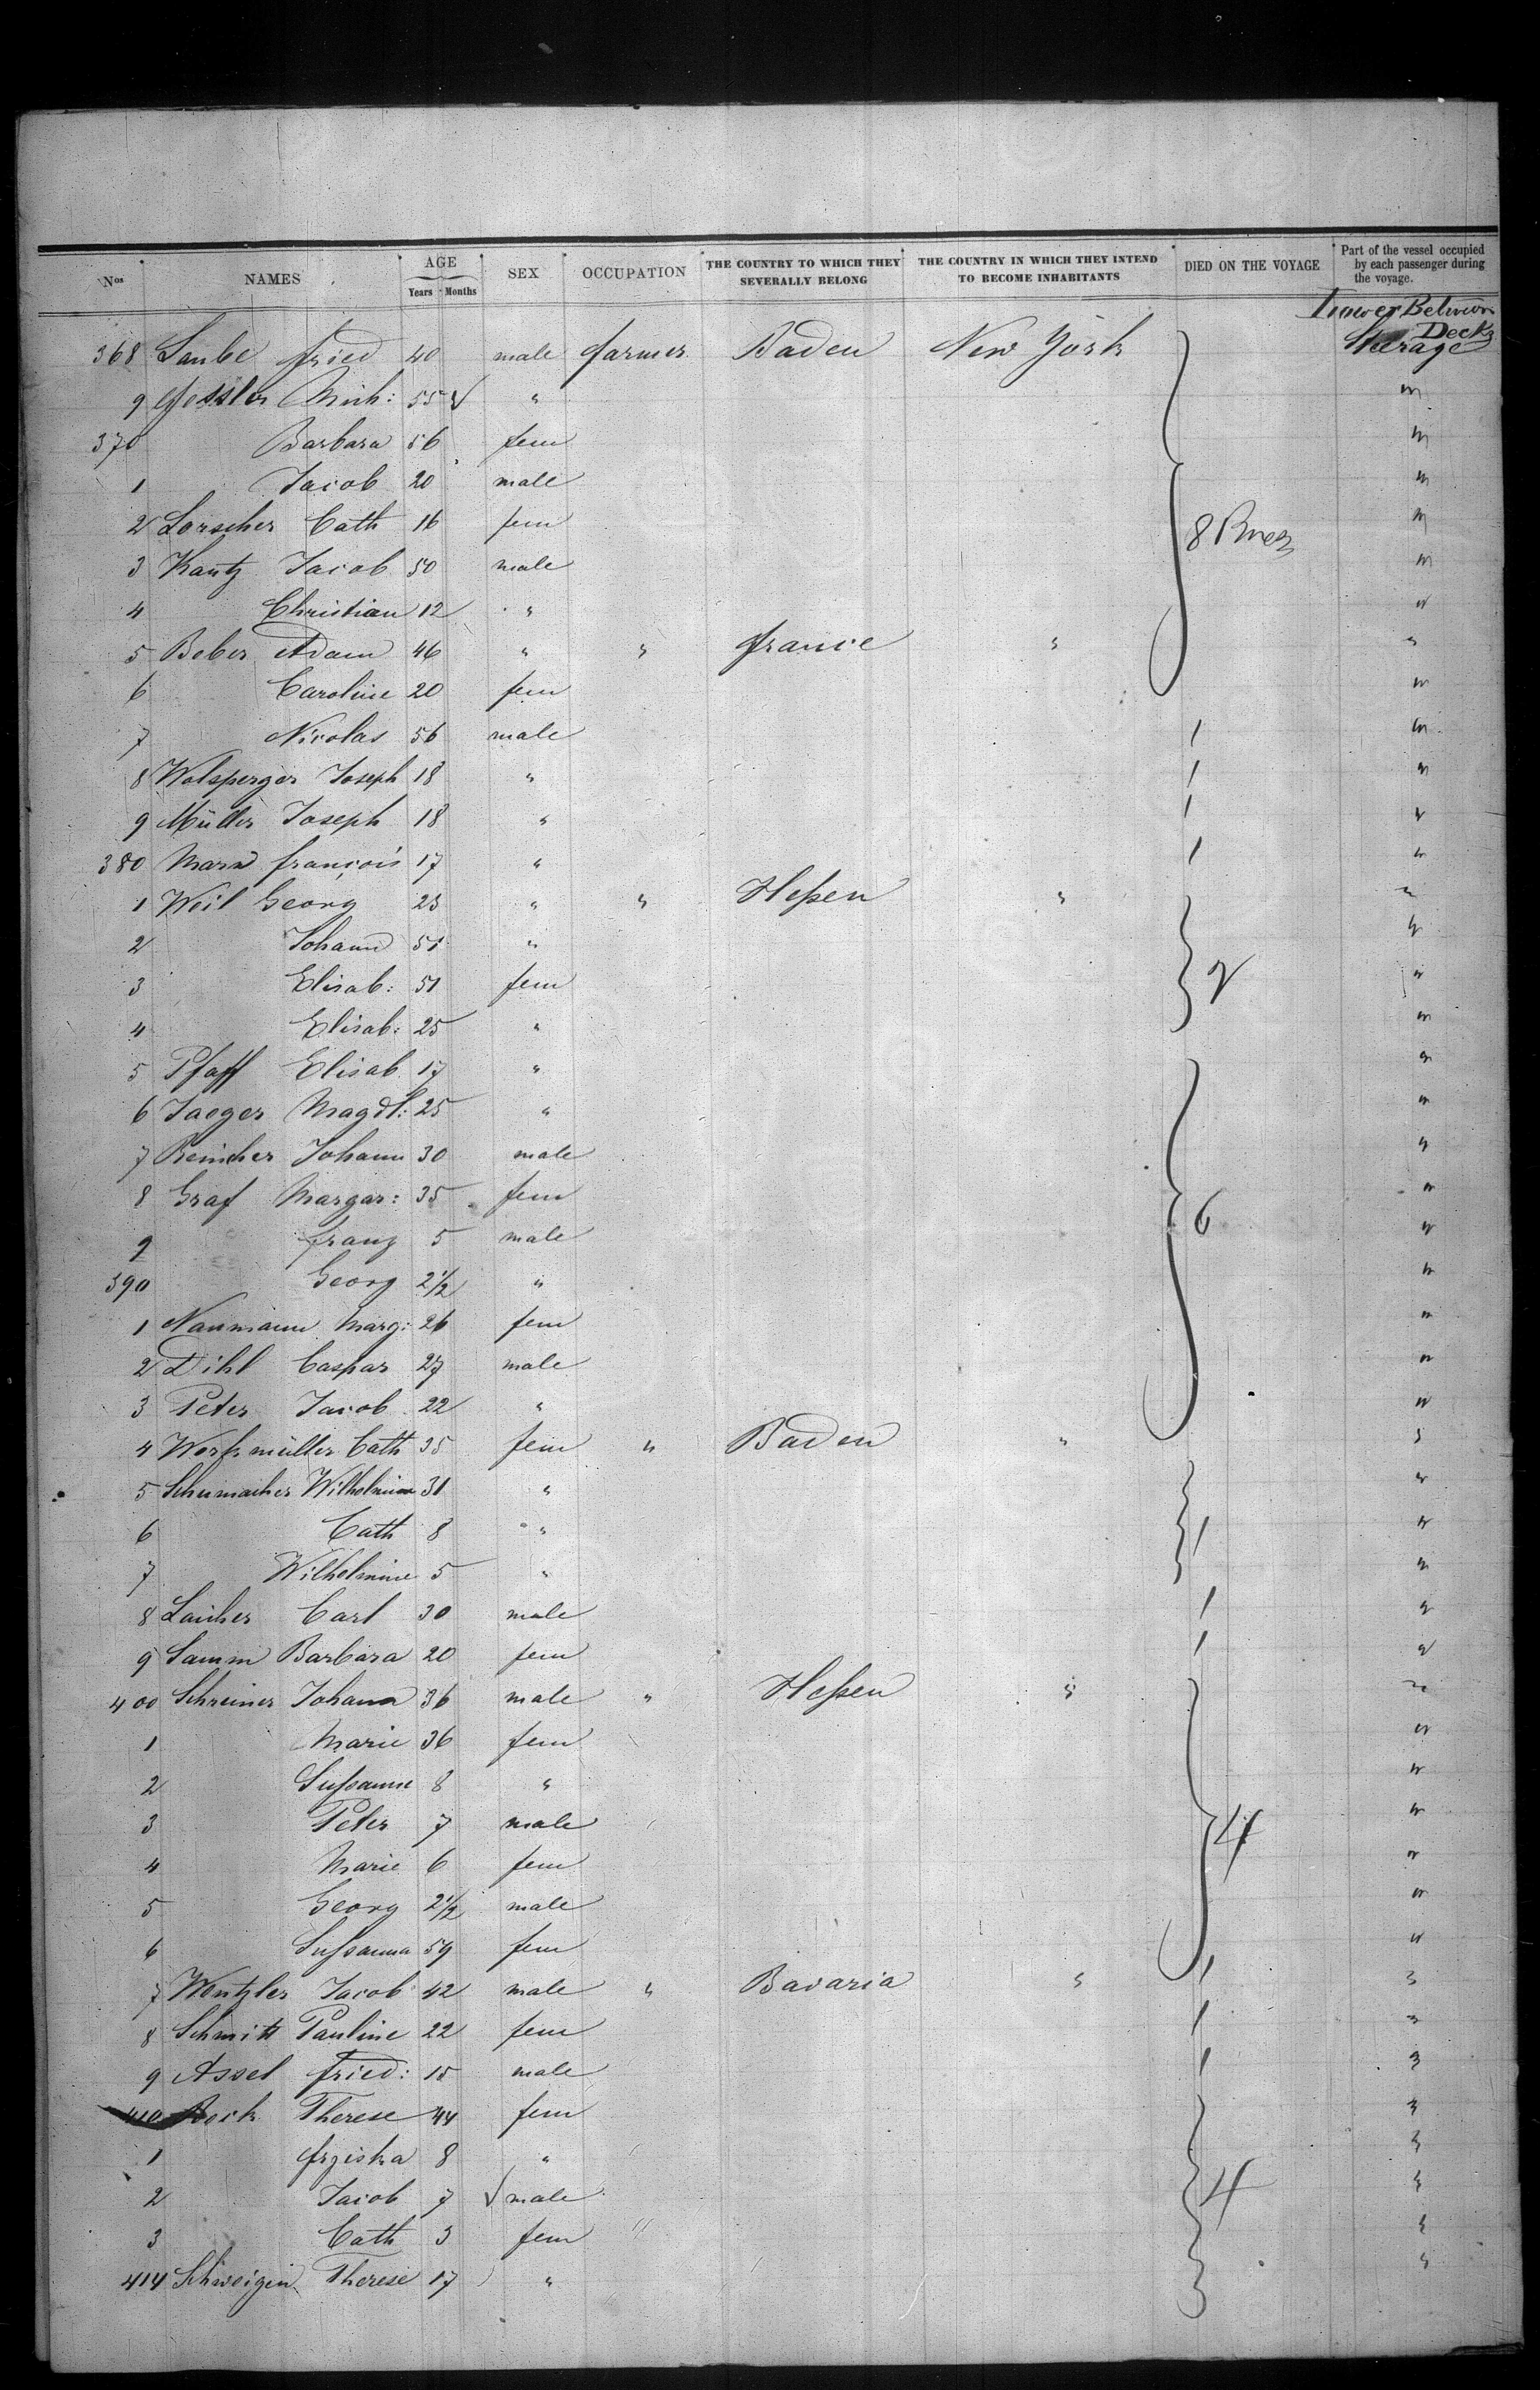 Nos NAMES AGE Years Months SEX OCCUPATION THE COUNTRY TO WHICH THEY SEVERALLY BELONG THE COUNTRY IN WHICH THEY INTEND TO BECOME INHABITANTS DIED ON THE VOYAGE Part of the vessel occupied by each passenger during the voyage.
Lower Between Decks
368 Laube Fried 40 male farmer Baden New York Steerage
9 Gessler Mich: 55 "
370 Barbara 56 fem
1 Jacob 20 male
2 Lorscher Cath 16 fem 8
3 Kautz Jacob 50 male
4 Christian 12 "
5 Beber Adam 46 " " France "
6 Caroline 20 fem
7 Nicolas 56 male 1
8 Wolsperger Joseph 18 " 1
9 Müller Joseph 18 " 1
380 François 17 " 1
1 Weil Georg 23 " " Heßen "
2 Johann 51 "
3 Elisab: 51 fem 2
4 Elisab: 25 "
5 Pfaff Elisab 17 "
6 Jaeger Magdl: 25 "
7 Johann 30 male
8 Graf Margar: 35 fem
9 Franz 5 male 6
390 Georg 2½ "
1 Naumann Marg: 26 fem
2 Dihl Caspar 27 male
3 Peter Jacob 22 "
4 Cath 35 fem " Baden "
5 Schumacher Wilhelmine 31 "
6 Cath 8 " 1
7 Wilhelmine 5 "
8 Laicher Carl 30 male 1
9 Samm Barbara 20 fem 1
400 Schreiner Johann 36 male " Heßen "
1 Marie 36 fem
2 Sußanne 8 "
3 Peter 7 male 4
4 Marie 6 fem
5 Georg 2½ male
6 Sußanna 59 fem
7 Wentzler Jacob 42 male " Bavaria " 1
8 Schmitt Pauline 22 fem 1
9 Assel Fried: 15 male 1
410 Bock Therese 44 fem
1 Frziska 8 "
2 Jacob 7 male 4
3 Cath 3 fem "
414 Schweigin Therese 17 "